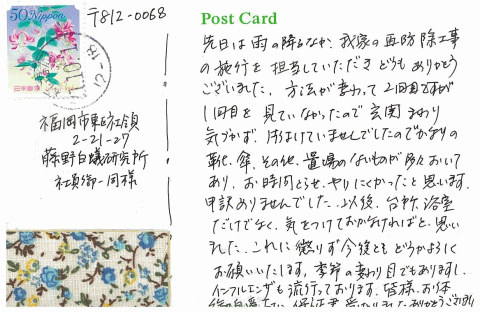 50 NIPPON
日本郵便
〒812-0068
福岡市東区社領
2-21-27
藤野白蟻研究所
社員御一同様
Post Card
先日は雨の降るなか、我家の再防除工事
の施行を担当していただき どうもありがとう
ございました。方法が変わって2回目ですが
1回目を見ていなかったので玄関まわり
気づかず、片づけていませんでしたのでかなりの
靴、傘、その他、置場のないものが多々おいて
あり、お時間とらせ、やりにくかったと思います。
申訳ありませんでした。以後、台所、浴室
だけでなく、気をつけておかなければと、思い
ました。これに懲りず今後とも どうかよろしく
お願いいたします。季節の変わり目でもありますし、
インフルエンザも流行っております。皆様、お体